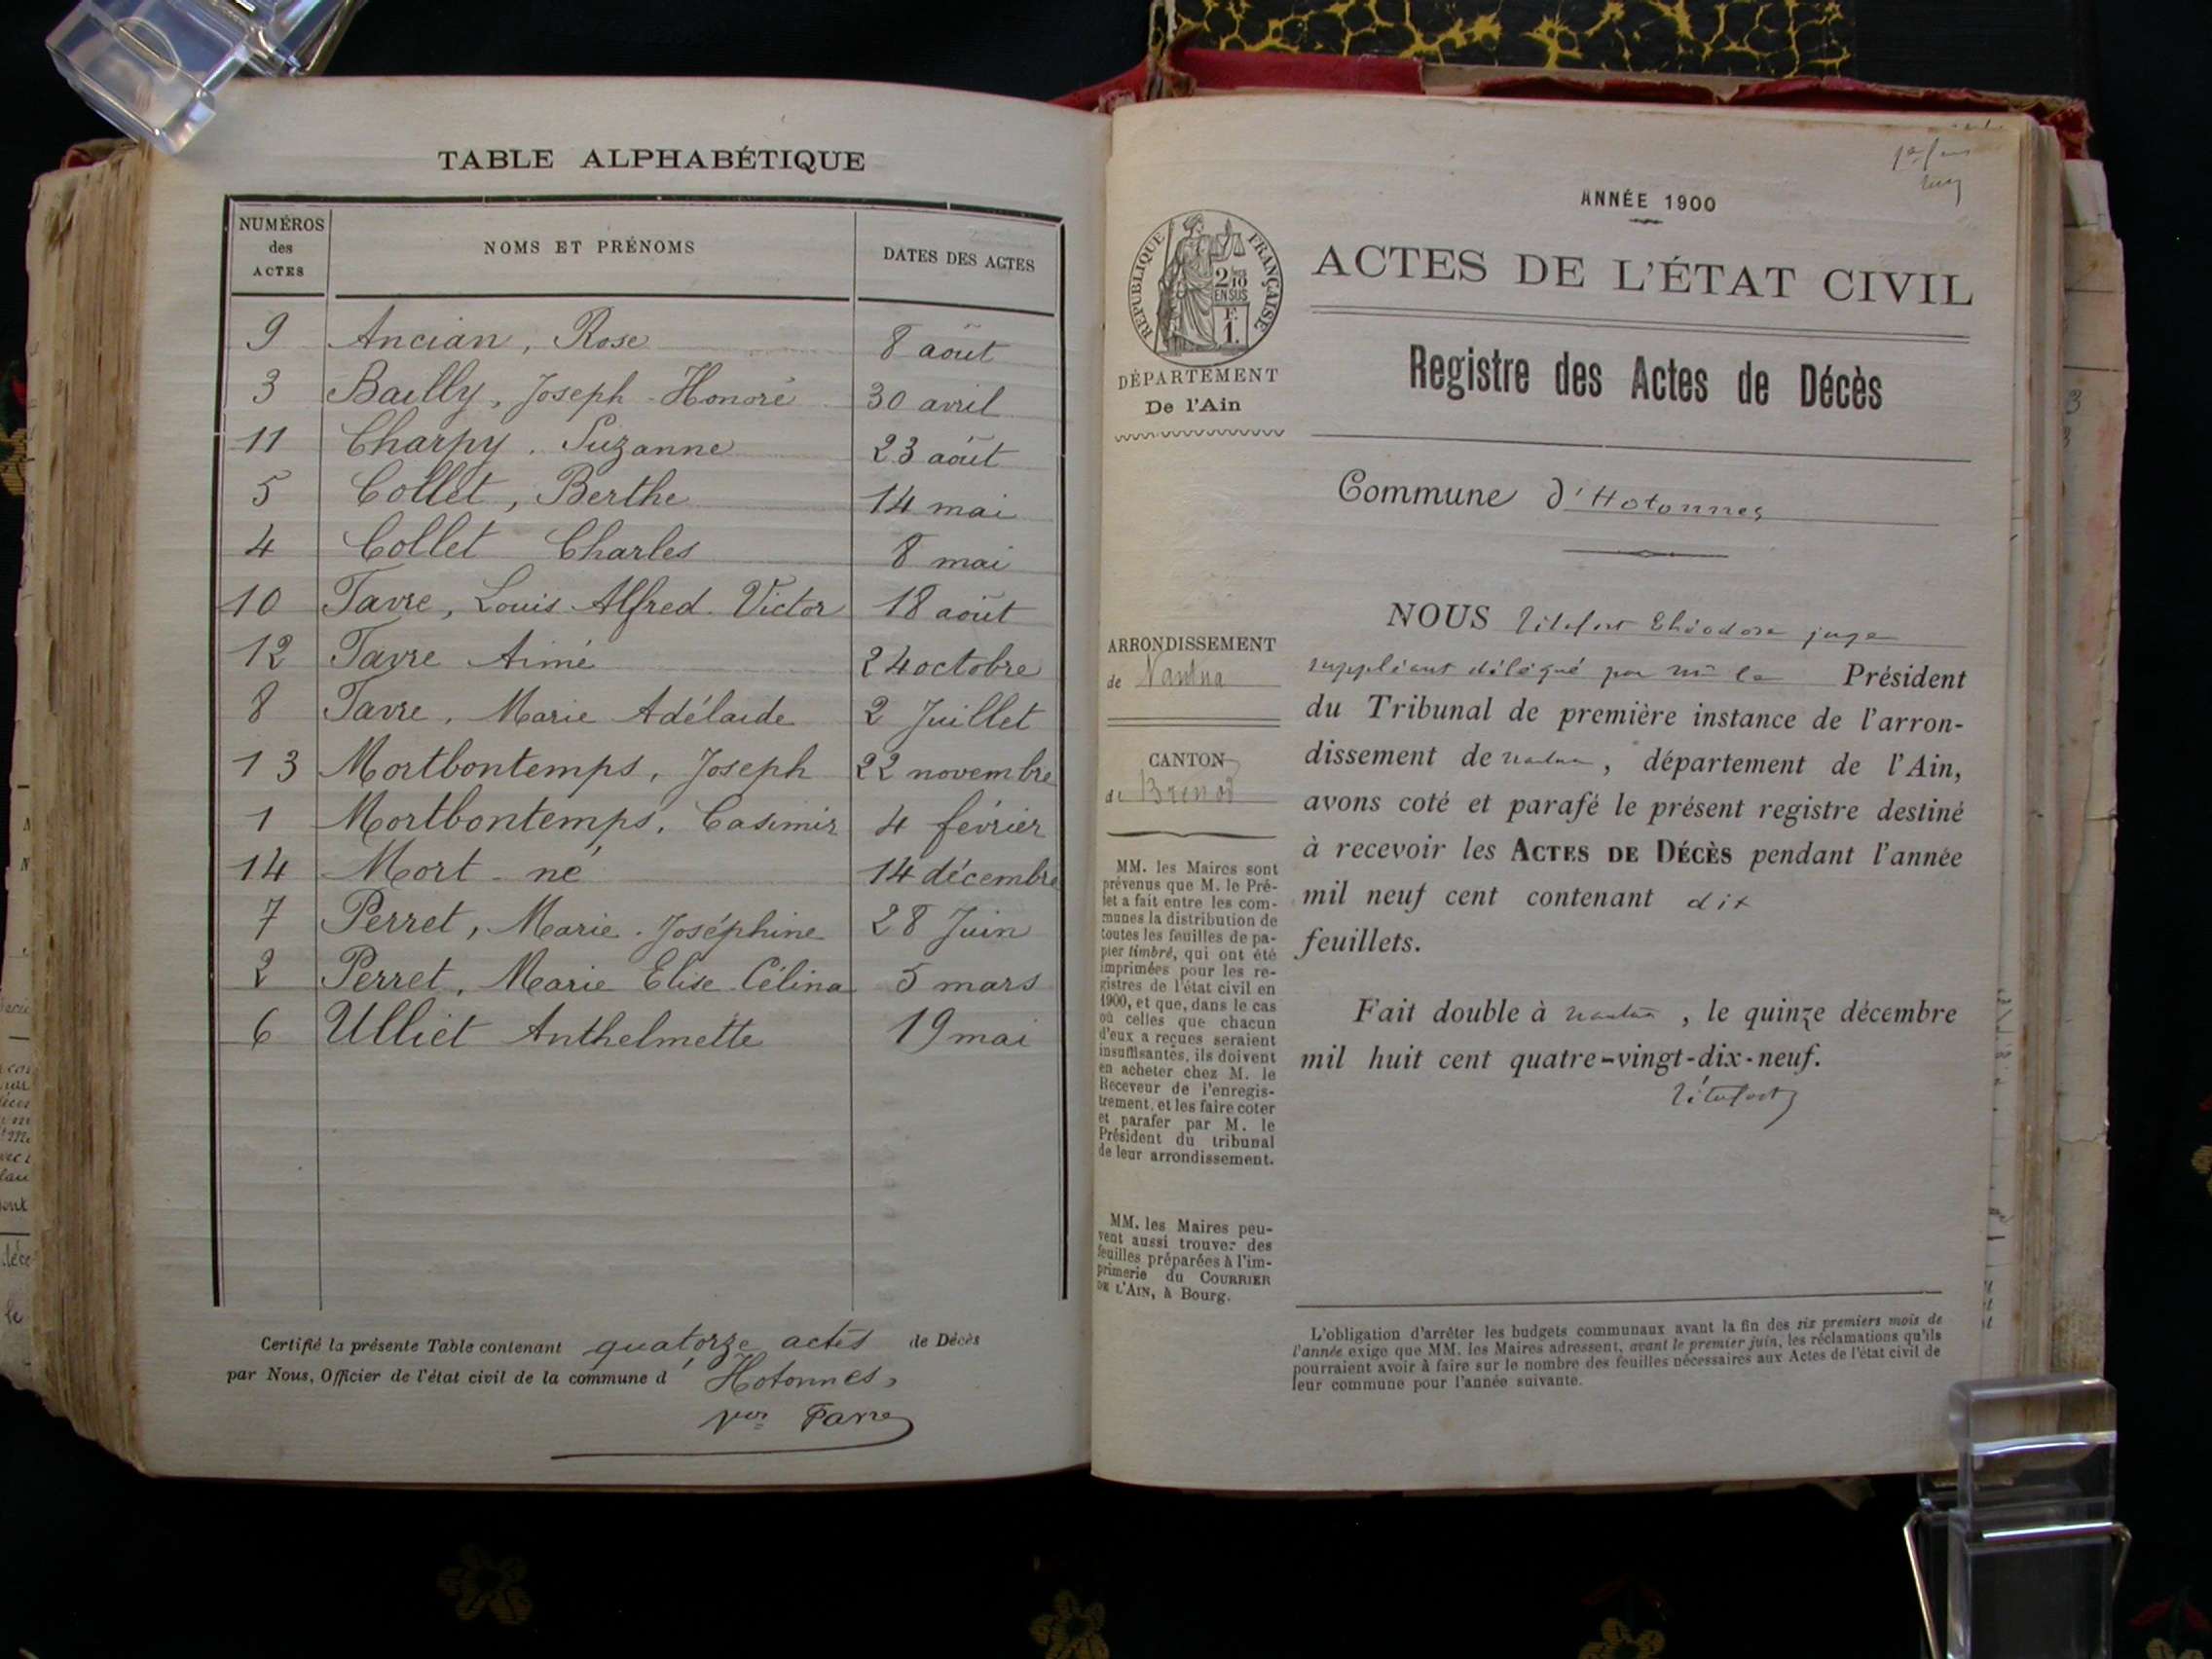 TABLE ALPHABÉTIQUE
NUMÉROS des ACTES NOMS ET PRÉNOMS DATES DES ACTES
9 Ancian, Rose 8 août
3 Bailly, Joseph-Honoré 30 avril
11 Charpy, Suzanne 23 août
5 Collet, Berthe 14 mai
4 Collet Charles 8 mai
10 Favre, Louis Alfred Victor 18 août
12 Favre Aimé 24 octobre
8 Favre, Marie Adélaïde 2 Juillet
13 Mortbontemps, Joseph 22 novembre
1 Mortbontemps, Casimir 4 février
14 Mort-né 14 décembre
7 Perret, Marie-Joséphine 28 Juin
2 Perret, Marie Elise Célina 5 mars
6 Ulliet Anthelmette 19 mai
Certifié la présente Table contenant quatorze actes de Décès
par Nous, Officier de l'état civil de la commune d'Hotonnes,
Favre
ANNÉE 1900
RÉPUBLIQUE FRANÇAISE
2/10 EN SUS
F. 1.
DÉPARTEMENT
De l'Ain
ACTES DE L'ÉTAT CIVIL
Registre des Actes de Décès
Commune d'Hotonnes
ARRONDISSEMENT
de Nantua
CANTON
de Brénod
MM. les Maires sont
prévenus que M. le Pré-
fet a fait entre les com-
munes la distribution de
toutes les feuilles de pa-
pier timbré, qui ont été
imprimées pour les re-
gistres de l'état civil en
1900, et que, dans le cas
où celles que chacun
d'eux a reçues seraient
insuffisantes, ils doivent
en acheter chez M. le
Receveur de l'enregis-
trement, et les faire coter
et parafer par M. le
Président du tribunal
de leur arrondissement.
MM. les Maires peu-
vent aussi trouver des
feuilles préparées à l'im-
primerie du COURRIER
DE L'AIN, à Bourg.
NOUS Théodore juge
suppléant délégué par Mr le Président
du Tribunal de première instance de l'arron-
dissement de Nantua, département de l'Ain,
avons coté et parafé le présent registre destiné
à recevoir les ACTES DE DÉCÈS pendant l'année
mil neuf cent contenant dix
feuillets.
Fait double à Nantua, le quinze décembre
mil huit cent quatre-vingt-dix-neuf.
L'obligation d'arrêter les budgets communaux avant la fin des six premiers mois de
l'année exige que MM. les Maires adressent, avant le premier juin, les réclamations qu'ils
pourraient avoir à faire sur le nombre des feuilles nécessaires aux Actes de l'état civil de
leur commune pour l'année suivante.